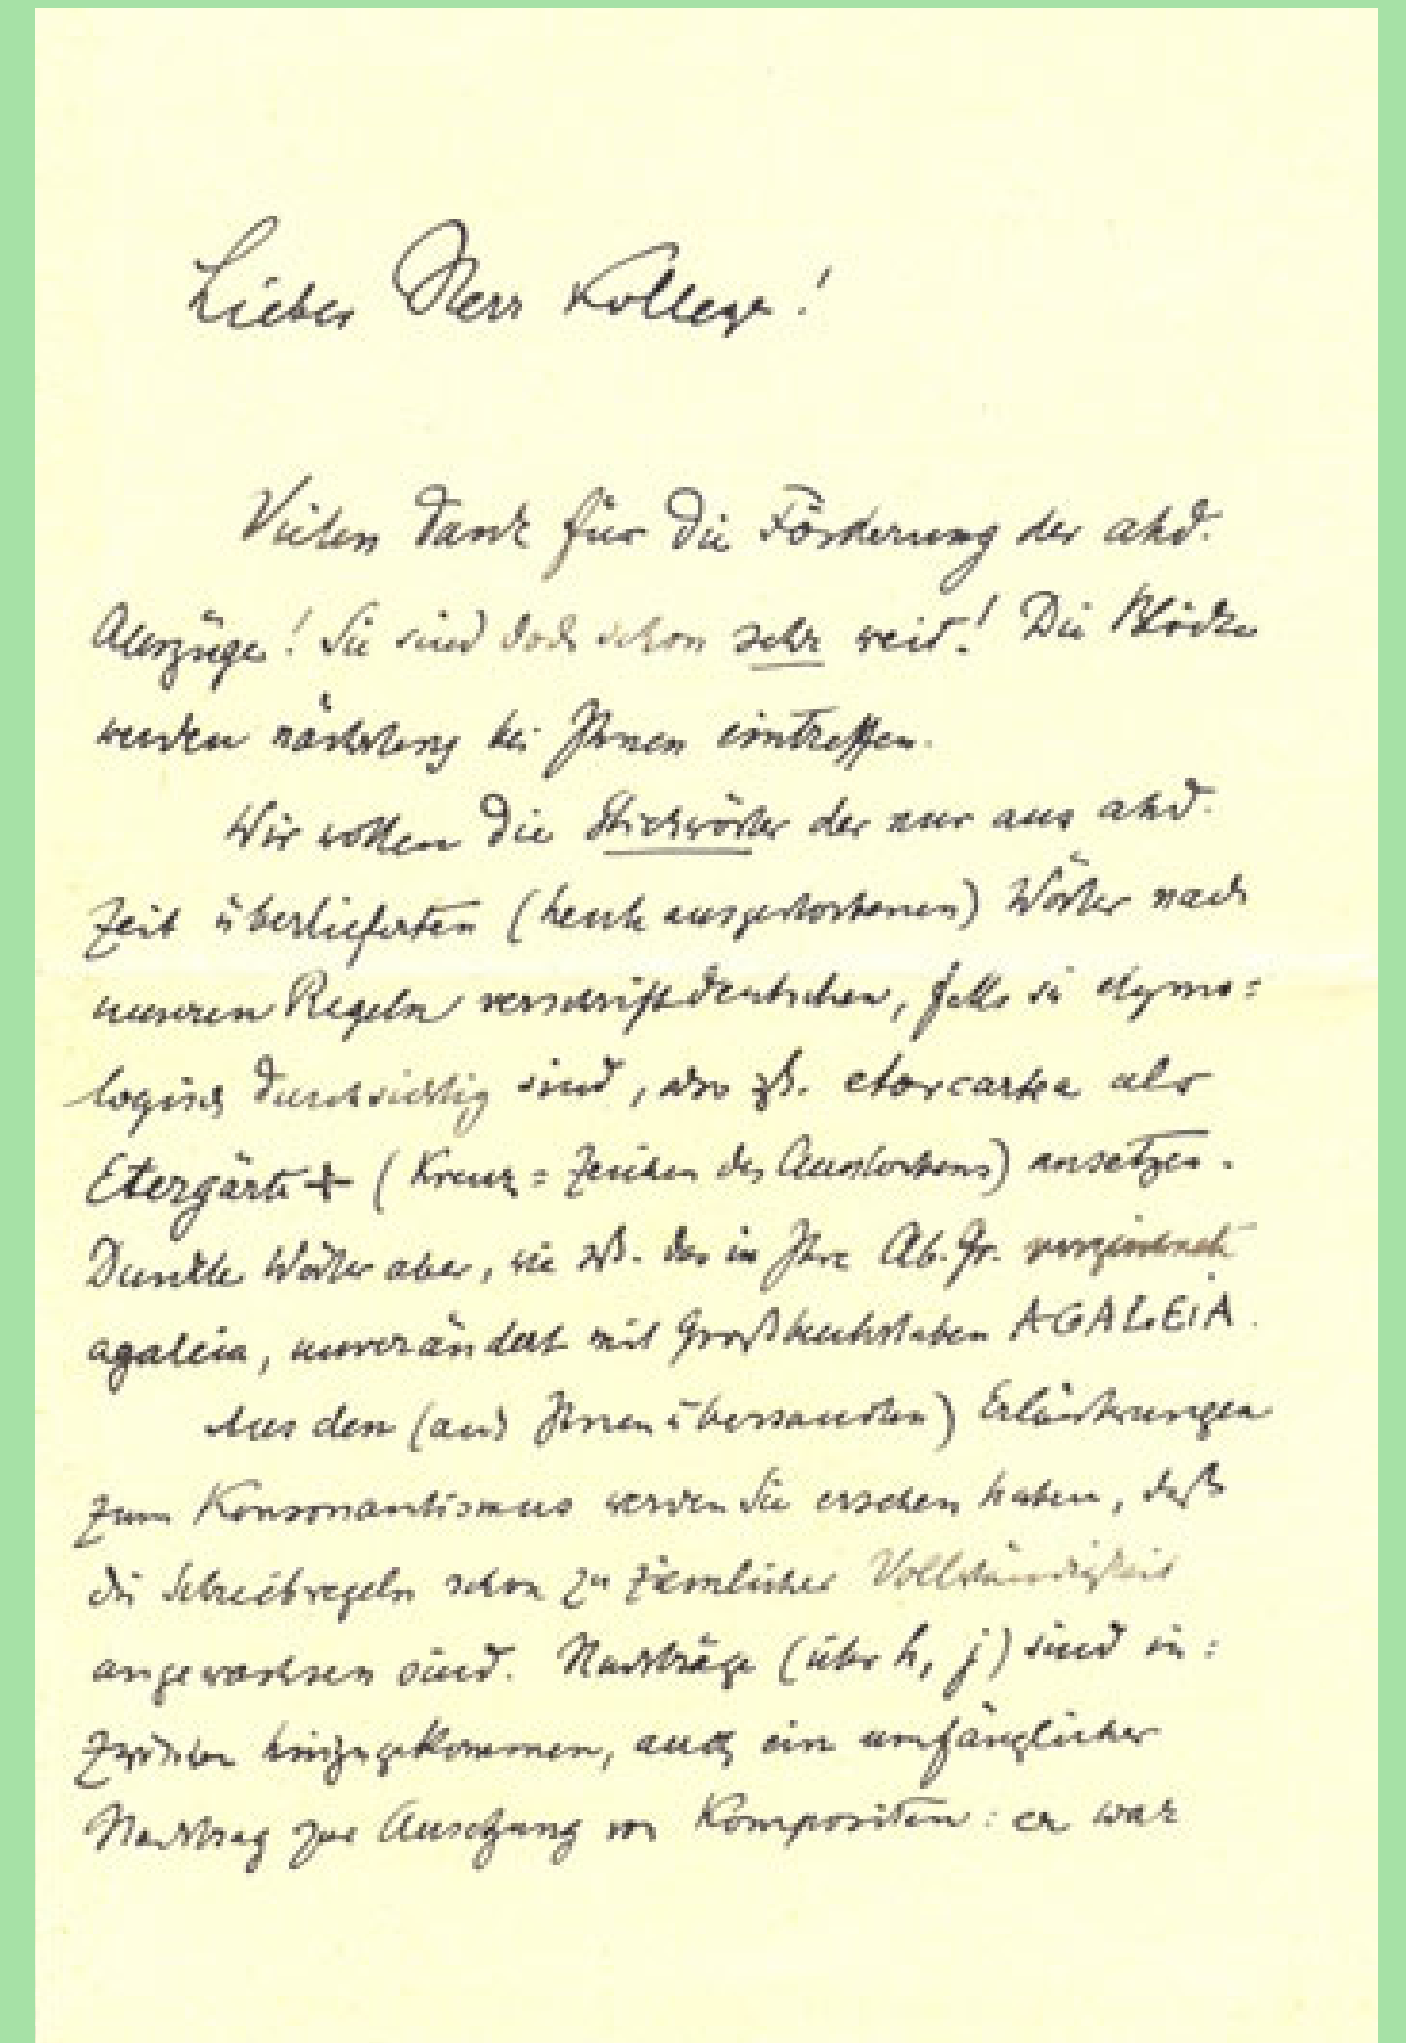 Lieber Herr Kollege!
Vielen Dank für die Förderung der ahd.
Auszüge! Sie sind doch schon sehr weit! Die Blöcke
werden nächstens bei Ihnen eintreffen.
Wir wollen die Stichwörter der nur aus ahd.
Zeit überlieferten (heute ausgestorbenen) Wörter nach
unseren Regeln verschriftdeutschen, falls sie etymo=
logisch durchsichtig sind, also zB. etarcartea als
Etergärte + (Kreuz = Zeichen des Aussterbens) ansetzen.
Dunkle Wörter aber, wie zB. das in Ihre Ab. Gr.
agaleia, unverändert mit Großbuchstaben AGALEIA.
Aus den (auch Ihnen übersandten) Erläuterungen
zum Konsonantismus werden Sie ersehen haben, daß
die Schreibregeln schon zu ziemlicher Vollständigkeit
angewachsen sind. Nachträge (über h, j) sind in=
zwischen hinzugekommen, auch ein umfänglicher
Nachtrag zur Ansetzung von Kompositen: er war